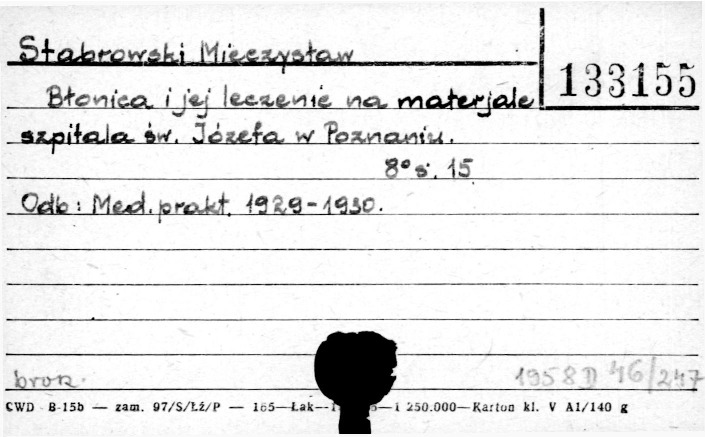 Stabrowski Mieczysław
133155
Błonica i jej leczenie na materjale
szpitala św. Józefa w Poznaniu.
8° s. 15
Odb: Med. prakt. 1929-1930.
brosz.
1958 D 46/247
CWD B-15b — zam. 97/S/Łź/P — 165—Łak— —1 250.000—Karton kl. V A1/140 g